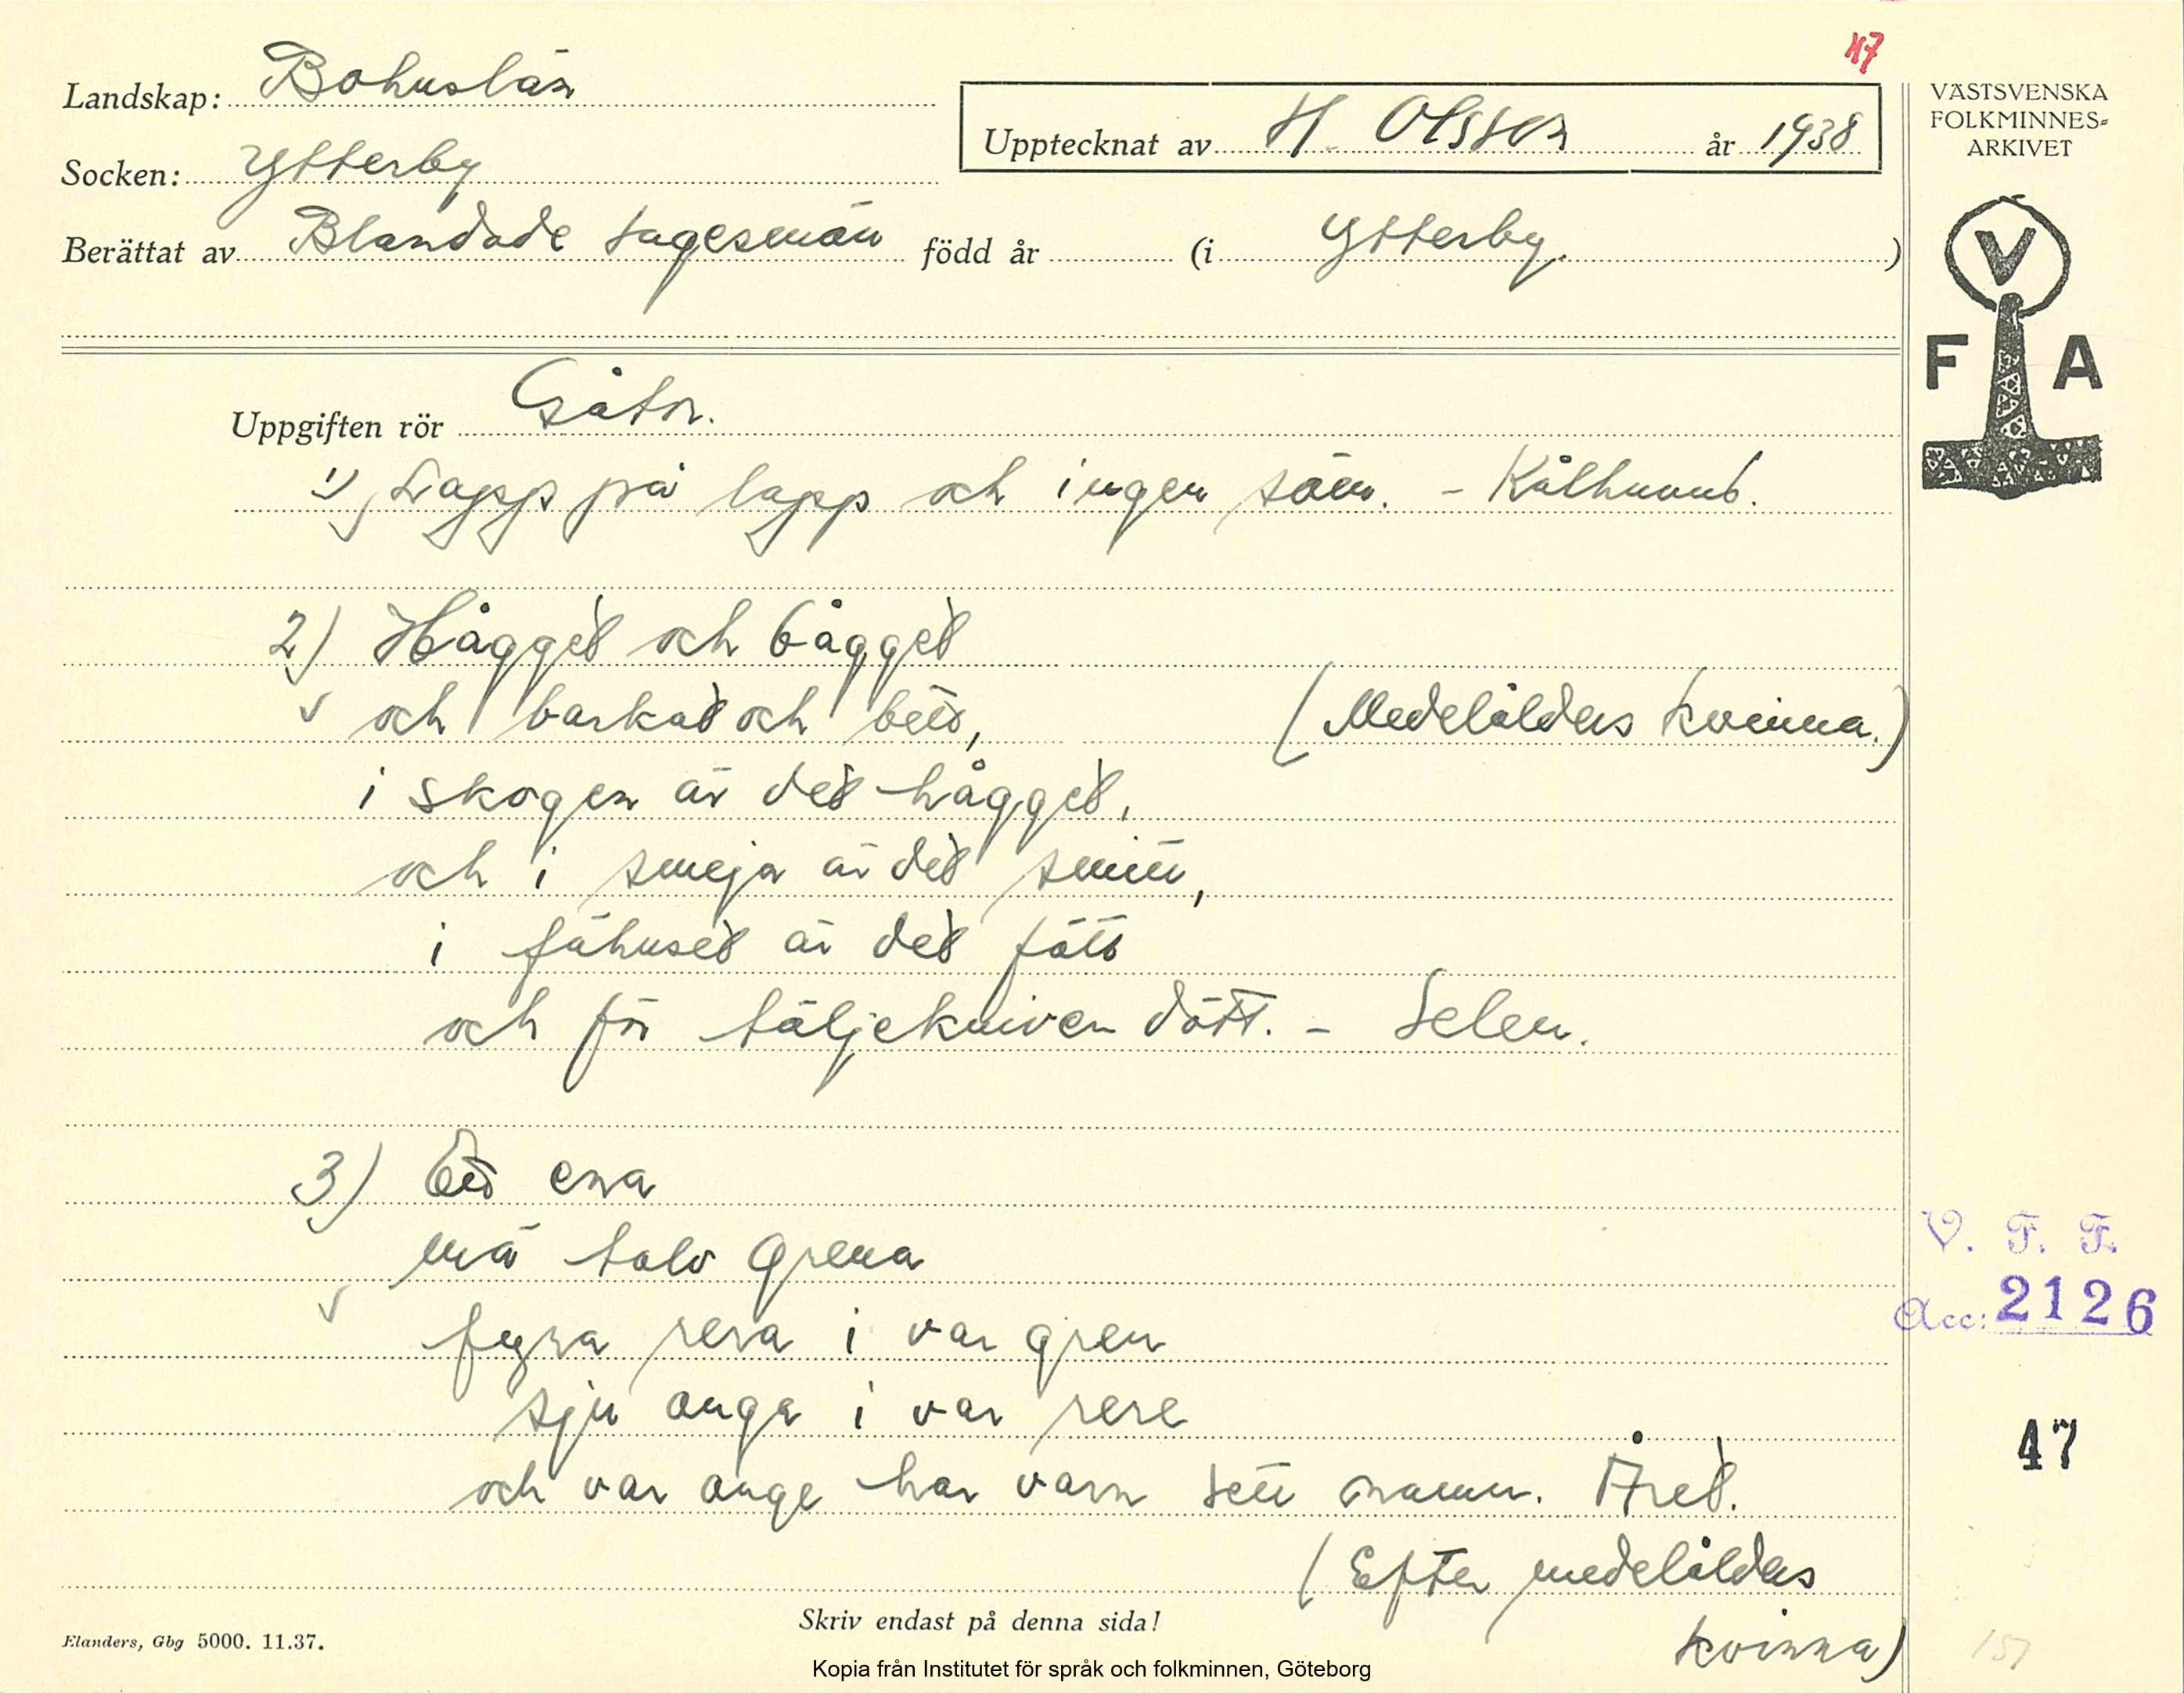 47
Landskap: Bohuslän
VÄSTSVENSKA
FOLKMINNES=
ARKIVET
Upptecknat av H. Olsson år 1938
Socken: Ytterby
Berättat av Blandade sagesmän född år (i Ytterby.)
V
F A
Uppgiften rör Gåtor.
1) Lapp på lapp och ingen söm. - Kålhuvud.
2) Hågget och bågget
och barkat och bett,
(Medelålders kvinna.)
i skogen är det hågget,
och i smeja är det smitt,
i fähuset är det fött
och för täljekniven dött. - Selen.
3) Ett ena
mä talv grena
fyra rera i var gren
sju onga i var rere
och var onge har varn sett namn. Året.
(Efter medelålders
kvinna)
V. F. F.
Acc: 2126
47
Skriv endast på denna sida!
Elanders, Gbg 5000. 11.37.
151
Kopia från Institutet för språk och folkminnen, Göteborg